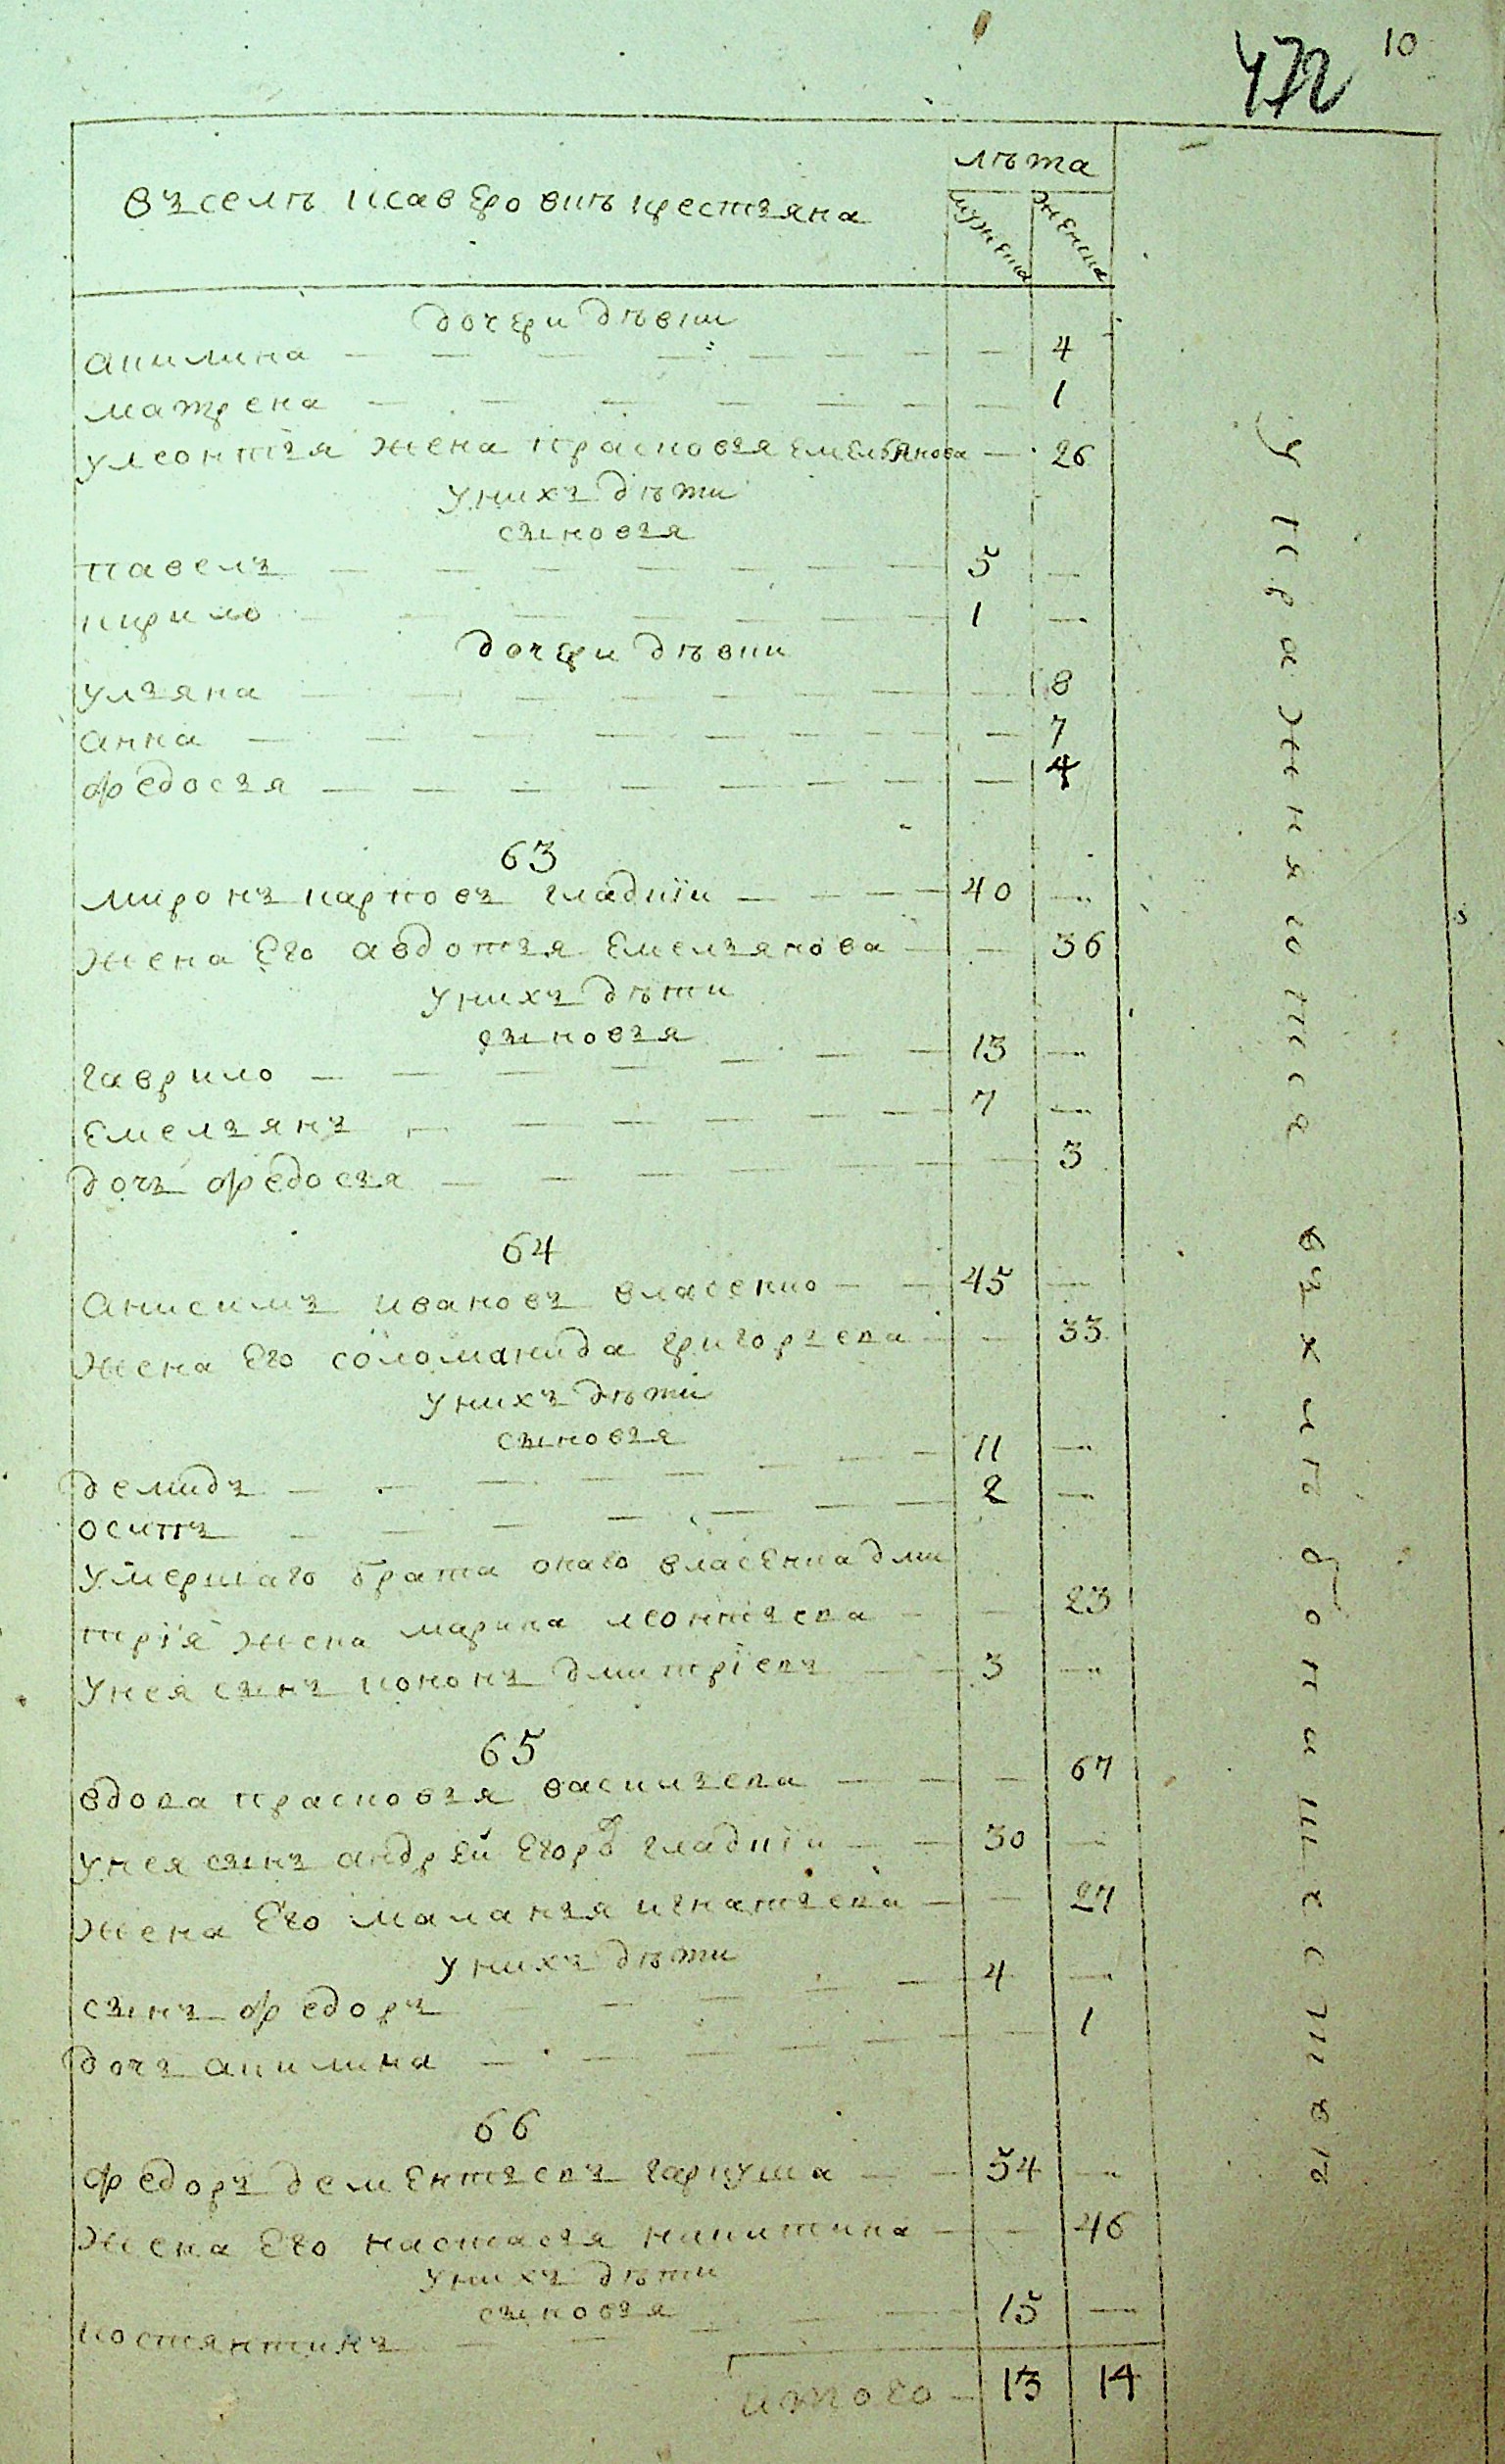 472 10
лѣта
въ селѣ Исаеѳровиѣ крестьяна
мужеска
женска
дочери дѣвки
акилина — 4
матрена — 1
У леонтья жена прасковья Емельянова — 26
У нихъ дѣти
сыновья
павелъ — 5 —
кирило — 1 —
дочери дѣвки
ульяна — 8
анна — 7
федосья — 4
63
миронъ карповъ гладкїи — 40 —
жена Его авдотья Емельянова — 36
У нихъ дѣти
сыновья
гаврило — 13 —
Емельянъ — 7 —
дочь федосья — 3
64
анисимъ ивановъ власенко — 45 —
жена Его соломанида григорьева — 33
У нихъ дѣти
сыновья
демидъ — 11 —
осипъ — 2 —
Умершаго брата онаго власЕнка дми
трїя жена марина леонтьева — 23
У нея сынъ кононъ дмитрїевъ — 3 —
65
вдова прасковья васильева — 67
У нея сынъ андрЕй Егоровъ гладкїи — 30 —
жена Его маланья игнатьева — 27
У нихъ дѣти
сынъ федоръ — 4 —
дочь акилина — 1
66
федоръ демЕнтьевъ гаркуша — 54 —
жена Его настасья никитина — 46
У нихъ дѣти
сыновья
костянтинъ — 15 —
итого — 13 14
Упражняются въ хлѣбопашествѣ